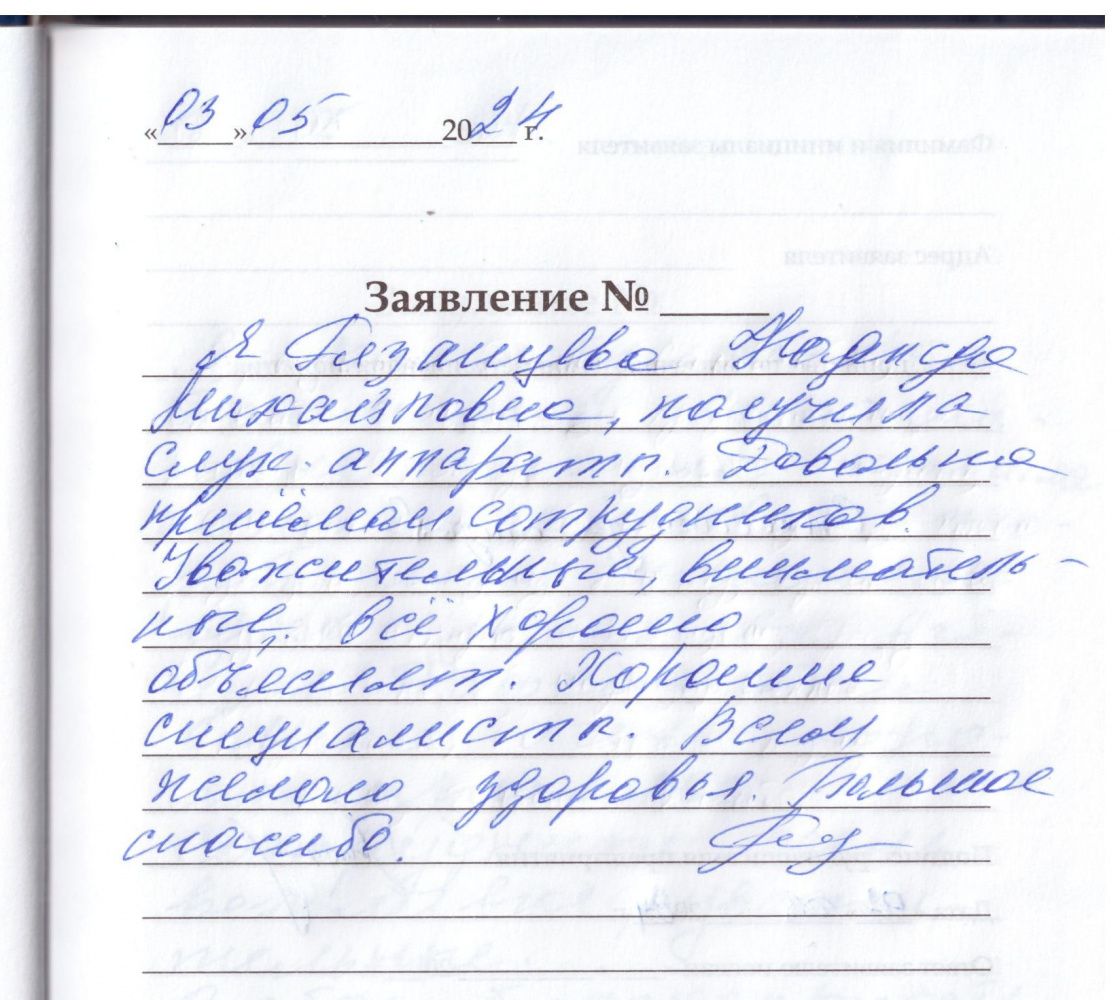 «03» 05 2024 г.
Заявление № ____
Я Рязанцева Надежда
Михайловна, получила
слух. аппараты. Довольна
приёмом сотрудников.
Уважительные, вниматель-
ные, всё хорошо
объяснят. Хорошие
специалисты. Всем
желаю здоровья. Большое
спасибо.